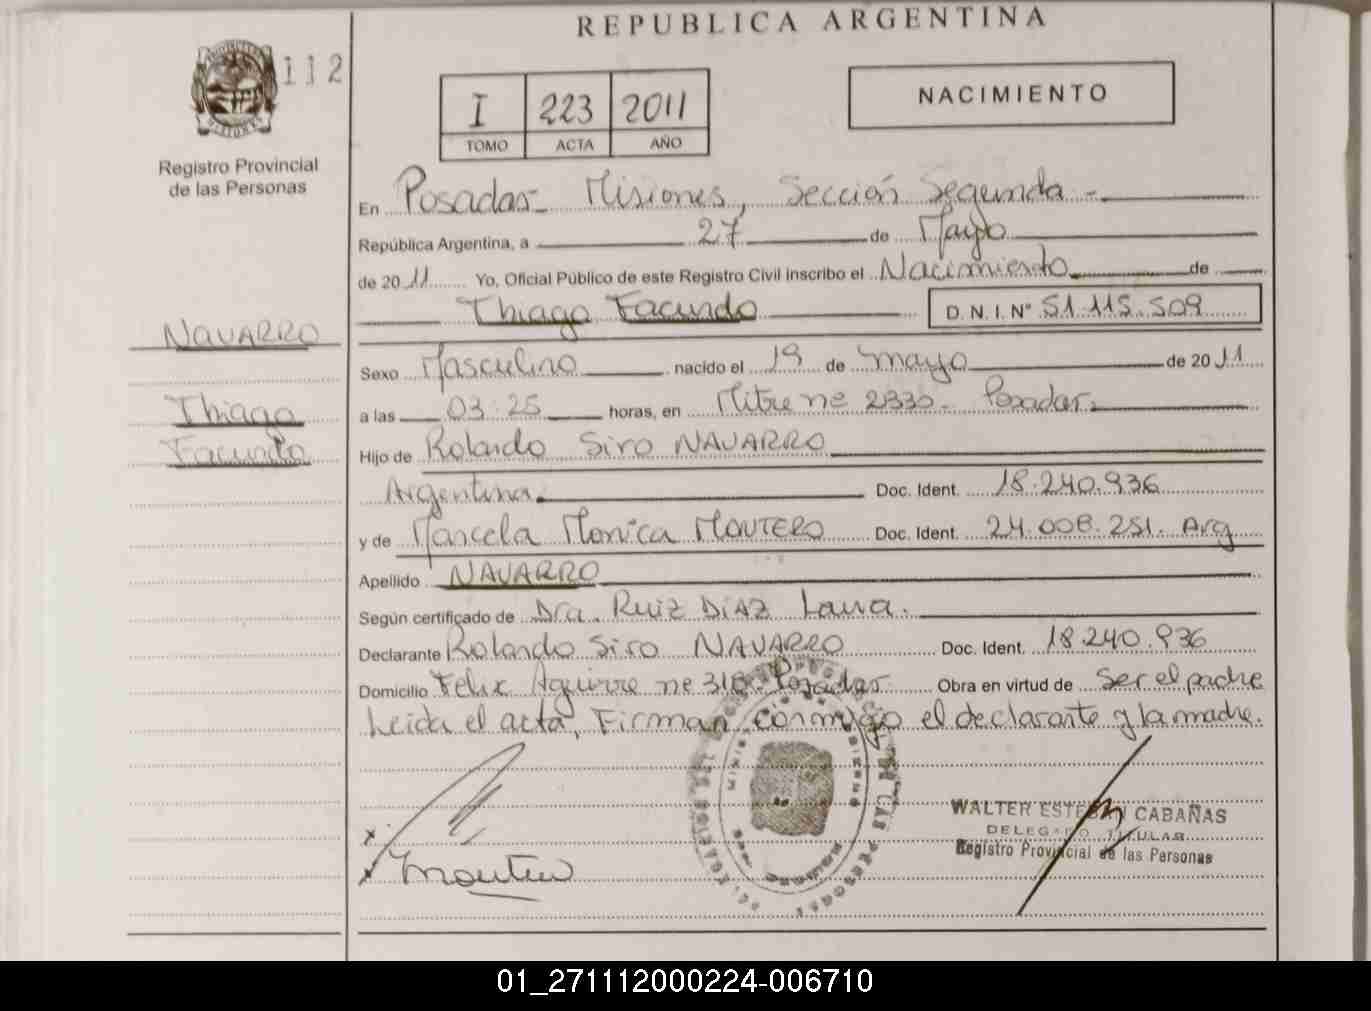 REPUBLICA ARGENTINA
112
I 223 2011
TOMO ACTA AÑO
NACIMIENTO
Registro Provincial
de las Personas
En Posadas- Misiones, Sección Segunda -
República Argentina, a 27 de Mayo
de 2011 Yo, Oficial Público de este Registro Civil inscribo el Nacimiento de
Thiago Facundo D.N.I. Nº 51.115.509
NAVARRO
Thiago
Facundo
Sexo Masculino nacido el 19 de mayo de 2011
a las 03:25 horas, en Mitre nº 2330- Posadas.
Hijo de Rolando Siro NAVARRO
Argentina. Doc. Ident. 18.240.936
y de Marcela Monica MONTERO Doc. Ident. 24.008.251. Arg
Apellido NAVARRO
Según certificado de Dra. Ruiz DIAZ Laura.
Declarante Rolando Siro NAVARRO Doc. Ident. 18.240.936
Domicilio Felix Aguirre nº 310- Posadas Obra en virtud de Ser el padre
Leida el acta, Firman conmigo el declarante y la madre.
WALTER ESTEBAN CABAÑAS
DELEGADO TITULAR
Registro Provincial de las Personas
01_271112000224-006710